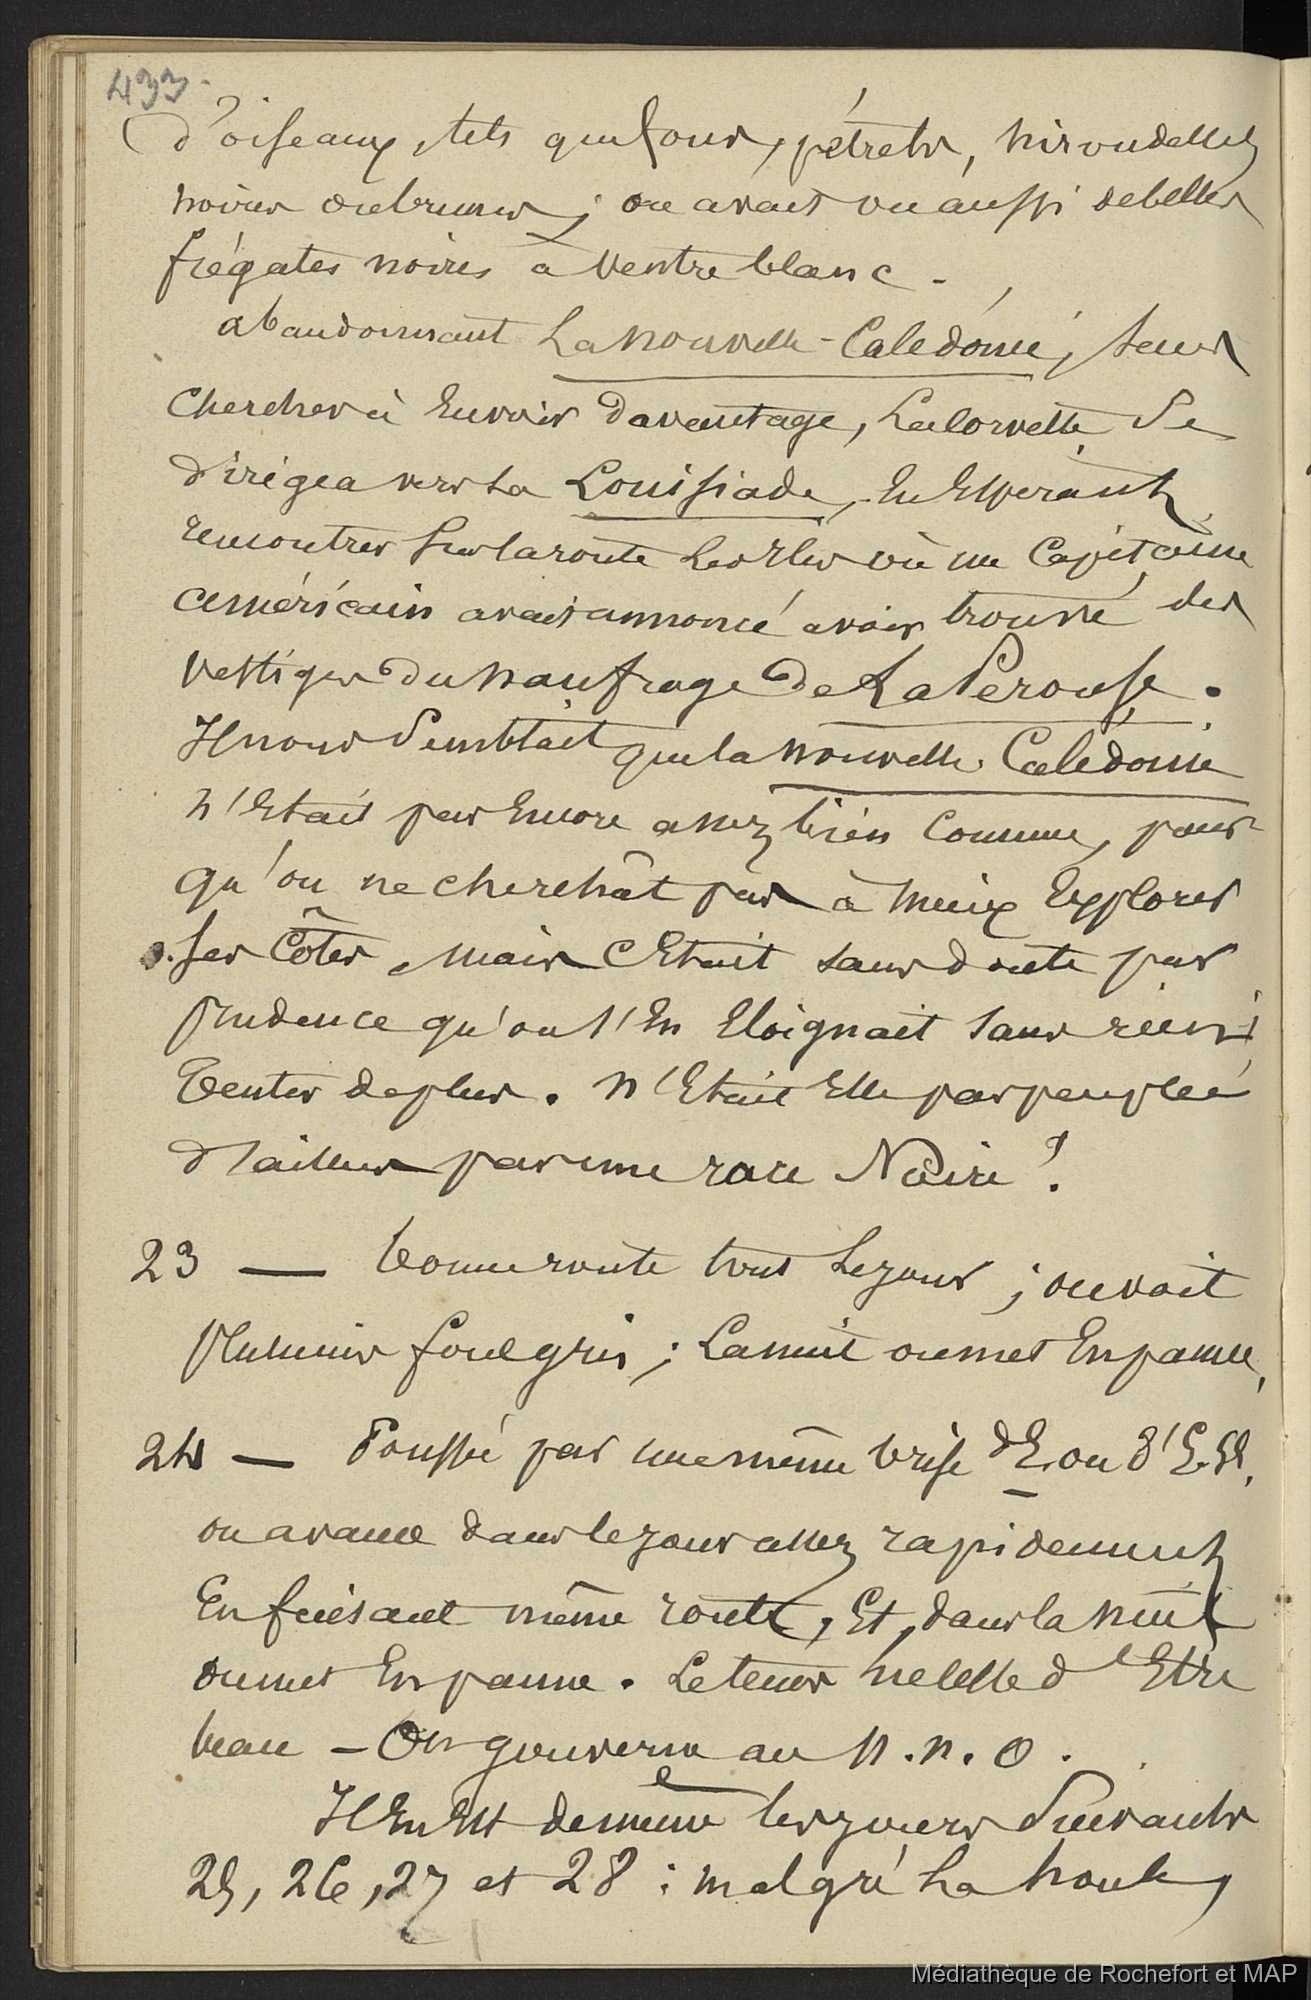 433.
d'oiseaux, tels que fous, pétrels, hirondelles
noires ou brunes ; on avait vu aussi de belles
frégates noires à ventre blanc.
abandonnant La nouvelle-Calédonie, sans
chercher à en voir davantage, La Corvette se
dirigea vers La Louisiade, En Espérant
rencontrer sur la route Les Iles où un Capitaine
américain avait annoncé avoir trouvé des
vestiges du naufrage de La Pérouse.
Il nous semblait que la nouvelle Calédonie
n'Etait pas Encore assez bien connue, pour
qu'on ne cherchât pas à mieux Explorer
ses Côtes, mais c'Etait sans doute par
prudence qu'on s'En Eloignait sans rien y
tenter de plus. N'Etait Elle pas peuplée
d'ailleurs par une race Noire ?
23 — bonne route tous Les jours ; on voit
plusieurs fous gris ; La nuit on met En panne,
24 — Poussé par une même brise d'E. ou d'E.S.E.
on avance dans le jour assez rapidement
En faisant même route, Et, dans la nuit
on met En panne. Le temps ne cesse d'Etre
beau – On gouverne au N.N.O.
Il En Est de même les jours suivants
25, 26, 27 et 28 : malgré La houle,
Médiathèque de Rochefort et MAP